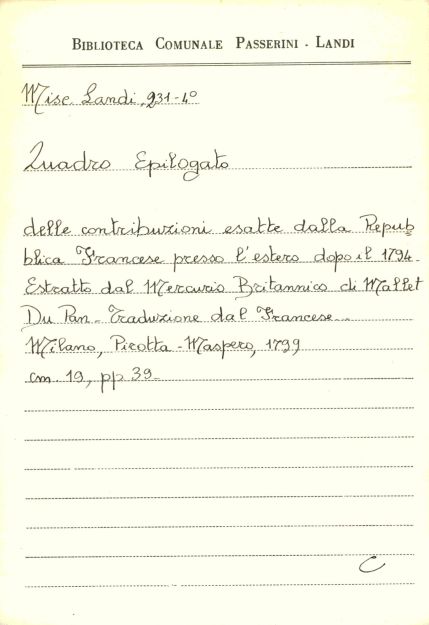 BIBLIOTECA COMUNALE PASSERINI - LANDI
Misc. Landi, 231-4º
Quadro Epilogato
delle contribuzioni esatte dalla Repub
blica Francese presso l'estero dopo il 1794-
Estratto dal Mercurio Britannico di Mallet
Du Pan- Traduzione dal Francese...
Milano, Pirotta-Maspero, 1799
cm. 19, pp 39-
C